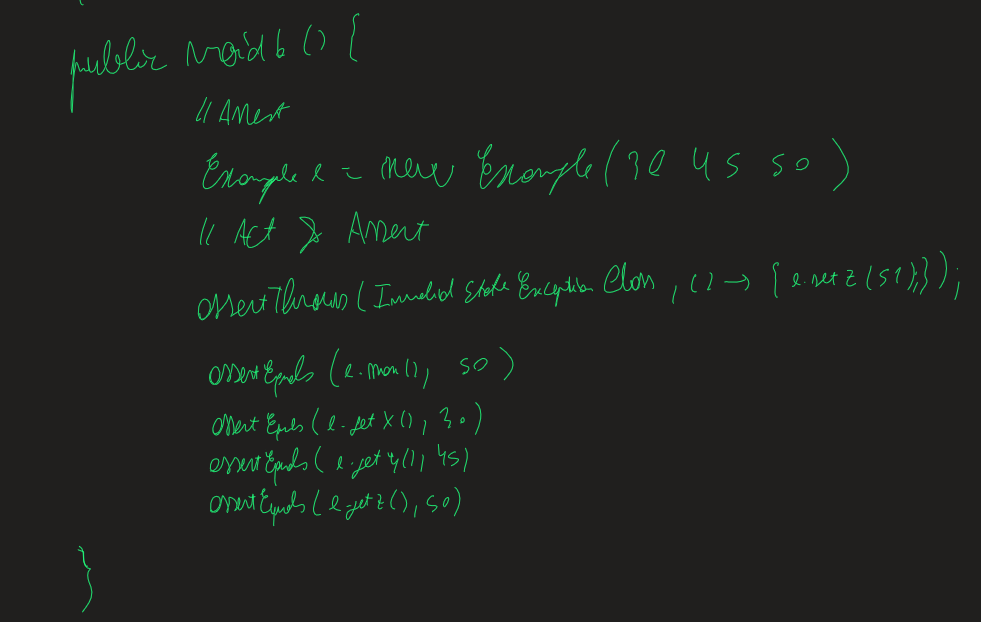 {
public void b () {
// Assert
Example e = new Example (30 45 50)
// Act & Assert
assertThrows (Invalid State Exception Class, () -> { e.set z (51);});
assertEquals (e.max(), 50)
assertEquals (e.get X(), 30)
assertEquals (e.get y(), 45)
assertEquals (e.get z(), 50)
}